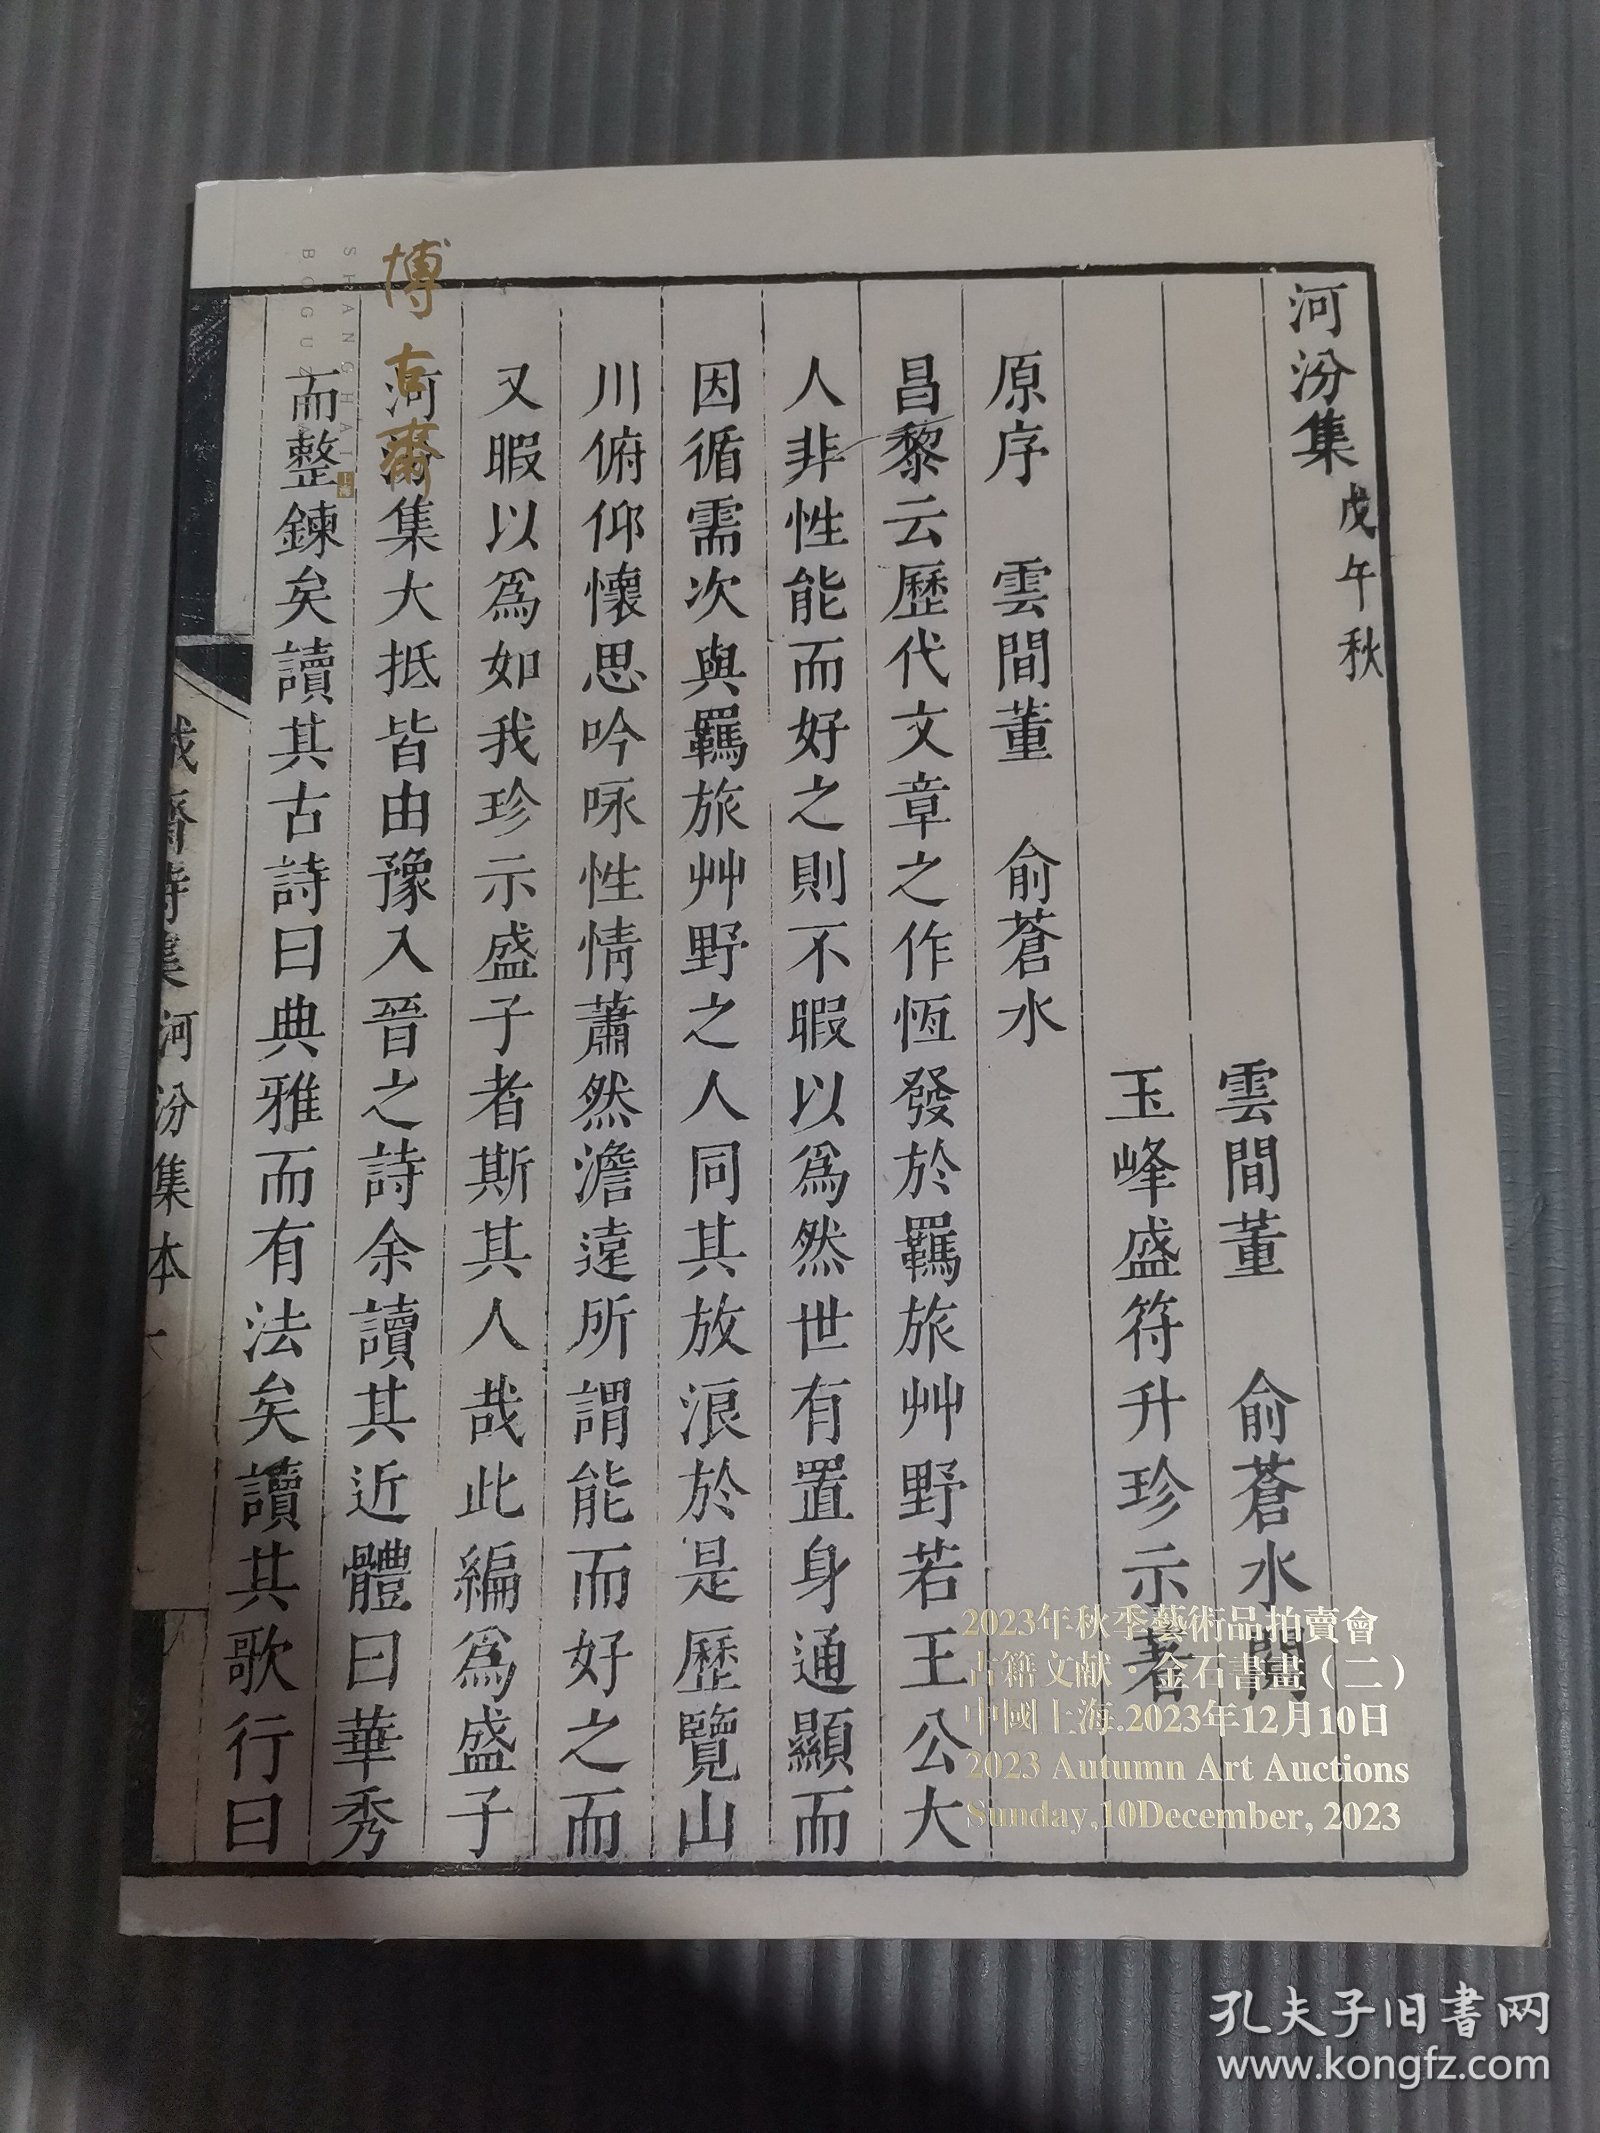 河汾集 戊午秋
雲間董 俞蒼水 閱
玉峰盛符升珍示 著
原序 雲間董 俞蒼水
昌黎云歷代文章之作恆發於羈旅艸野若王公大
人非性能而好之則不暇以爲然世有置身通顯而
因循需次與羈旅艸野之人同其放浪於是歷覽山
川俯仰懷思吟咏性情蕭然澹遠所謂能而好之而
又暇以爲如我珍示盛子者斯其人哉此編爲盛子
河汾集大抵皆由豫入晉之詩余讀其近體曰華秀
而整鍊矣讀其古詩曰典雅而有法矣讀其歌行曰
誠齋詩集 河汾集本
博古齋
上海
SHANGHAI
BOGUZ
2023年秋季藝術品拍賣會
古籍文献·金石書畫（二）
中國上海.2023年12月10日
2023 Autumn Art Auctions
Sunday,10December, 2023
孔夫子旧书网
www.kongfz.com